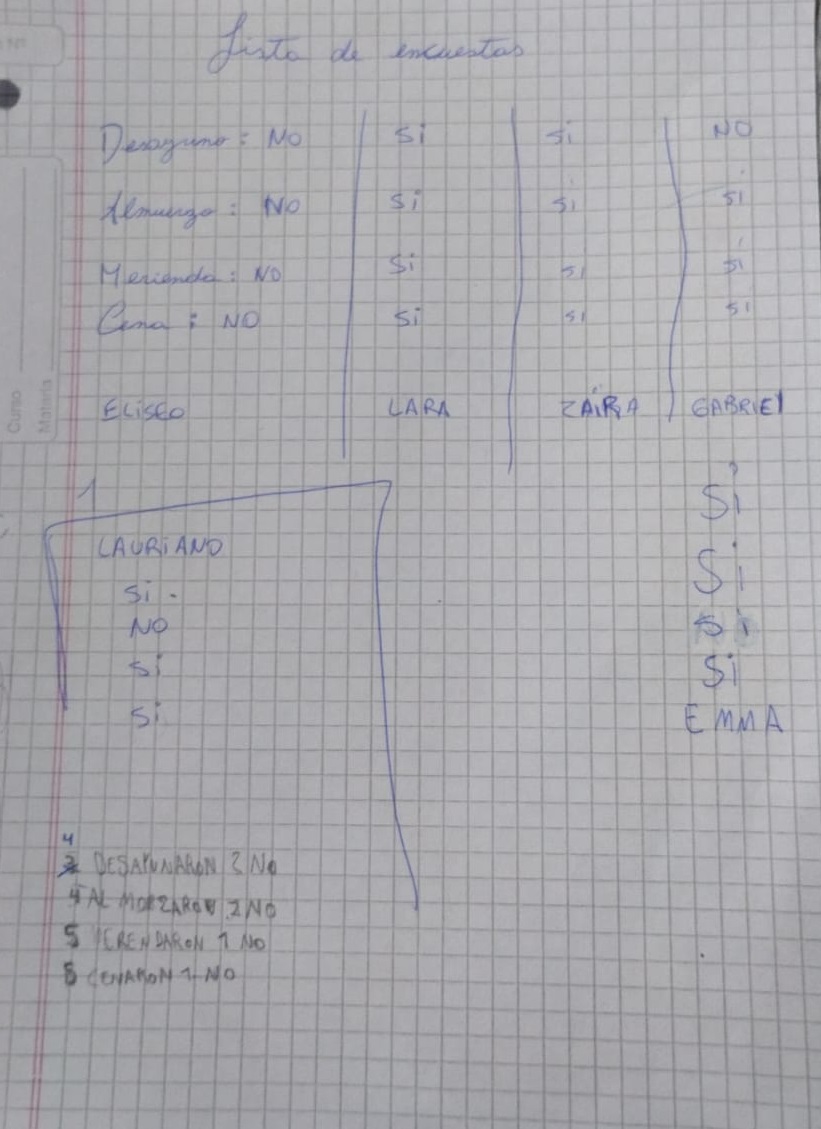 Lista de encuestas
Desayuno : NO Si Si NO
Almuerzo : NO Si Si Si
Merienda : NO Si Si Si
Cena : NO Si Si Si
ELISEO LARA ZAIRA GABRIEl
1
LAURIANO
Si.
NO
Si
Si
Si
Si
Si
Si
EMMA
4
DESAYUNARON 3 No
4 AL MORZARON 2 NO
5 MERENDARON 1 NO
5 CENARON 1 NO
Curso
Materia